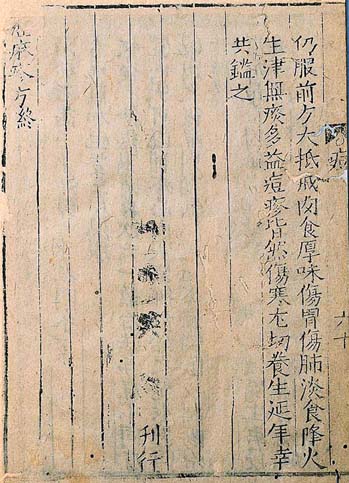 痘
六十
仍服前方大抵戒肉食厚味傷胃傷肺淡食降火
生津無痰多益痘疹皆然傷寒尤切養生延年幸
共鑑之
刊行
疹方終